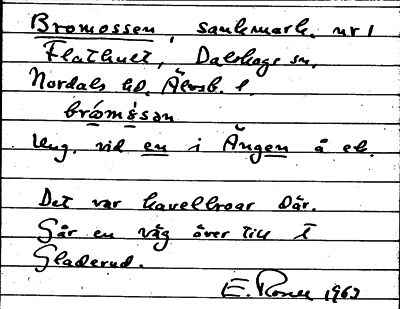 Bromossen, sankmark, nr 1
Flathult, Dalskogs sn,
Nordals hd, Älvsb. l.
brómòsən
Ung. vid en i Ängen å ek.
Det var kavelbroar där.
Går en väg över till
Gladerud.
E. 1963